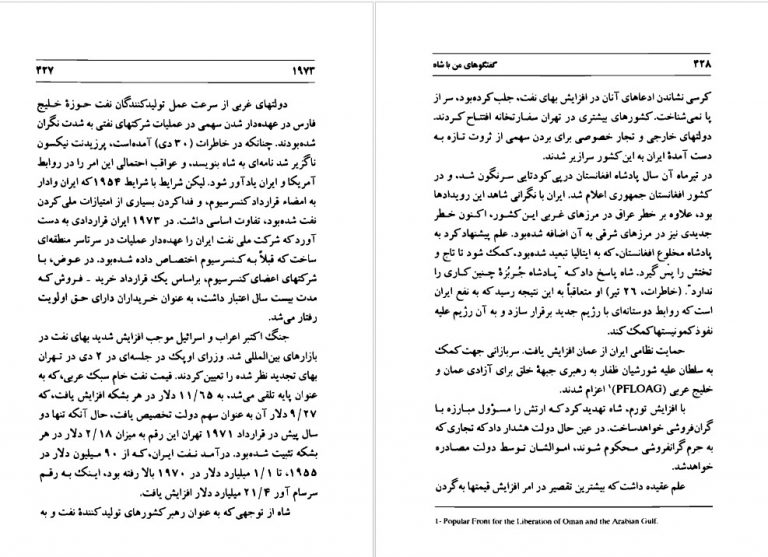 ۱۹۷۳ ۴۲۷
دولتهای غربی از سرعت عمل تولیدکنندگان نفت حوزهٔ خلیج
فارس در عهده‌دار شدن سهمی در عملیات شرکتهای نفتی به شدت نگران
شده‌بودند. چنانکه در خاطرات (۳۰ دی) آمده‌است، پرزیدنت نیکسون
ناگزیر شد نامه‌ای به شاه بنویسد، و عواقب احتمالی این امر را در روابط
آمریکا و ایران یادآور شود. لیکن شرایط با شرایط ۱۹۵۴ که ایران وادار
به امضاء قرارداد کنسرسیوم، و فداکردن بسیاری از امتیازات ملی‌کردن
نفت شده‌بود، تفاوت اساسی داشت. در ۱۹۷۳ ایران قراردادی به دست
آورد که شرکت ملی نفت ایران را عهده‌دار عملیات در سرتاسر منطقه‌ای
ساخت که قبلاً به کنسرسیوم اختصاص داده شده‌بود. در عوض، با
شرکتهای اعضای کنسرسیوم، براساس یک قرارداد خرید - فروش که
مدت بیست سال اعتبار داشت، به عنوان خریداران دارای حق اولویت
رفتار می‌شد.
جنگ اکتبر اعراب و اسرائیل موجب افزایش شدید بهای نفت در
بازارهای بین‌المللی شد. وزرای اوپک در جلسه‌ای در ۲ دی در تهران
بهای تجدید نظر شده را تعیین کردند. قیمت نفت خام سبک عربی، که به
عنوان پایه تلقی می‌شد، به ۱۱/۶۵ دلار در هر بشکه افزایش یافت، که
۹/۲۷ دلار آن به عنوان سهم دولت تخصیص یافت، حال آنکه تنها دو
سال پیش در قرارداد ۱۹۷۱ تهران این رقم به میزان ۲/۱۸ دلار در هر
بشکه تثبیت شده‌بود. درآمد نفت ایران، که از ۹۰ میلیون دلار در
۱۹۵۵، تا ۱/۱ میلیارد دلار در ۱۹۷۰ بالا رفته بود، اینک به رقم
سرسام آور ۲۱/۴ میلیارد دلار افزایش یافت.
شاه از توجهی که به عنوان رهبر کشورهای تولیدکنندهٔ نفت و به
۴۲۸ گفتگوهای من با شاه
کرسی نشاندن ادعاهای آنان در افزایش بهای نفت، جلب کرده‌بود، سر از
پا نمی‌شناخت. کشورهای بیشتری در تهران سفارتخانه افتتاح کردند.
دولتهای خارجی و تجار خصوصی برای بردن سهمی از ثروت تازه به
دست آمدهٔ ایران به این کشور سرازیر شدند.
در تیرماه آن سال پادشاه افغانستان درپی کودتایی سرنگون شد، و در
کشور افغانستان جمهوری اعلام شد. ایران با نگرانی شاهد این رویدادها
بود، علاوه بر خطر عراق در مرزهای غربی این کشور، اکنون خطر
جدیدی نیز در مرزهای شرقی به آن اضافه شده‌بود. علم پیشنهاد کرد به
پادشاه مخلوع افغانستان، که به ایتالیا تبعید شده‌بود، کمک شود تا تاج و
تختش را پس گیرد. شاه پاسخ داد که "پادشاه جُربُزهٔ چنین کاری را
ندارد". (خاطرات، ۲۶ تیر) او متعاقباً به این نتیجه رسید که به نفع ایران
است که روابط دوستانه‌ای با رژیم جدید برقرار سازد و به آن رژیم علیه
نفوذ کمونیستها کمک کند.
حمایت نظامی ایران از عمان افزایش یافت. سربازانی جهت کمک
به سلطان علیه شورشیان ظفار به رهبری جبههٔ خلق برای آزادی عمان و
خلیج عربی (PFLOAG)۱ اعزام شدند.
با افزایش تورم، شاه تهدید کرد که ارتش را مسؤول مبارزه با
گران‌فروشی خواهدساخت. در عین حال دولت هشدار داد که تجاری که
به جرم گرانفروشی محکوم شوند، اموالشان توسط دولت مصادره
خواهدشد.
علم عقیده داشت که بیشترین تقصیر در امر افزایش قیمتها به گردن
1- Popular Front for the Liberation of Oman and the Arabian Gulf.